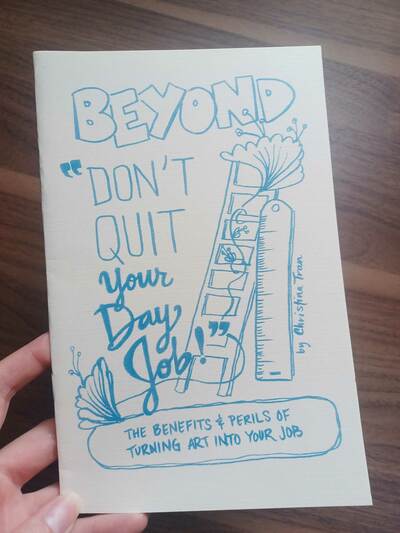 BEYOND
"DON'T
QUIT
Your
Day
Job!"
by Christina Tran
THE BENEFITS & PERILS OF
TURNING ART INTO YOUR JOB